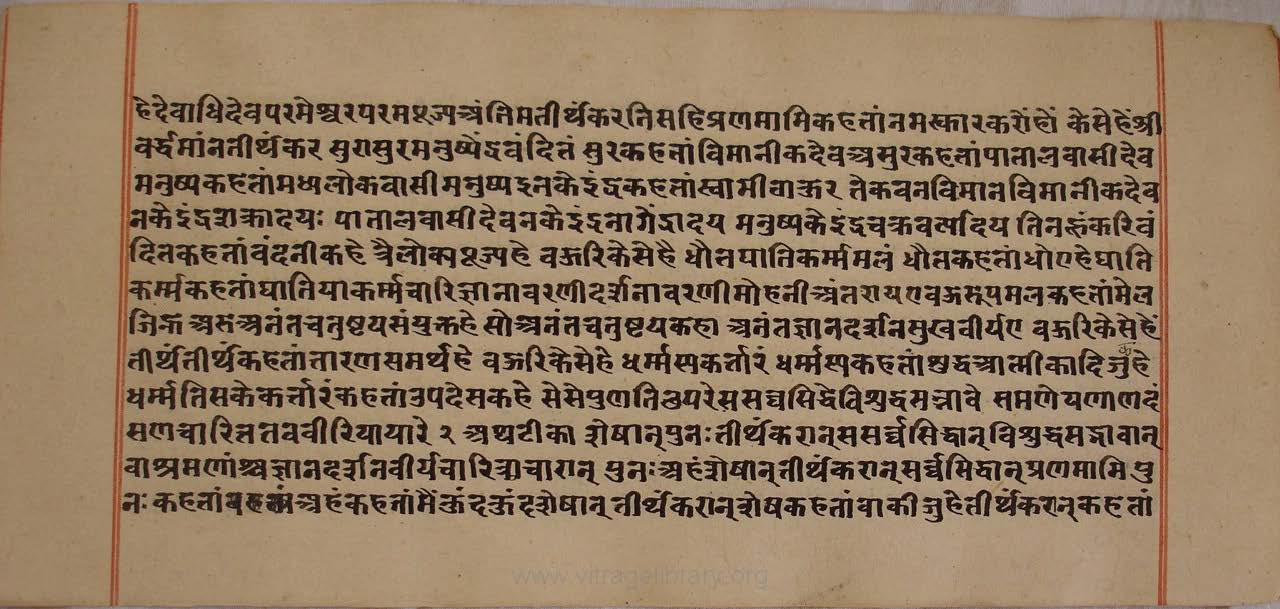 हेदेवाधिदेवपरमेश्वरपरमपूज्यअंतिमतीर्थंकरतिसहिप्रणमामिकहतांनमस्कारकरोंहों केसेहेंश्री
वर्द्धमांनतीर्थंकर सुरासुरमनुष्येंद्रवंदितं सुरकहतांविमानीकदेवअसुरकहतांपातालवासीदेव
मनुष्यकहतांमध्यलोकवासीमनुष्यइनकैइंद्रकहतांस्वामीवाऊर तेकवनविमानविमानीकदेव
नकैइंद्रशक्रादयः पातालवासीदेवनकैइंद्रनागेंद्रादय मनुष्यकैइंद्रचक्रवर्त्यादिय तिनहूंकरिवं
दितकहतांवंदनीकहे त्रैलोक्यपूज्यहे वऊरिकेसेहै धौतघातिकर्म्ममलं धौतकहतांधोएहेघाति
कर्म्मकहतांघातियाकर्म्मचारिज्ञानावरणीदर्शनावरणीमोहनीअंतरायएवऊरूपमलकहतांमेल
जिनेंअसेअनंतचतुष्टयसंयुक्तहे सोअनंतचतुष्टयकहा अनंतज्ञानदर्शनसुखवीर्यए वऊरिकेसेहें
तीर्थंतीर्थकहतांतारणसमर्थहे वऊरिकेसेहे धर्म्मस्यकर्तारं धर्म्मस्यकहतांशुद्धआत्मीकादिजुहे
धर्म्मतिसकेकर्त्तारंकहतांउपदेसकहे सेसेपुणतिछपरेससच्चसिद्धेविशुद्धसप्नावे समणेयणाणदं
सणचारित्ततववीरियायारे २ अथटीका शेषान्पुनःतीर्थंकरान्ससर्व्वसिद्धान्विशुद्धसद्भावान्
वाश्रमणांश्चज्ञानदर्शनवीर्यचारित्राचारान् पुनःअहंशेषान्तीर्थंकरान्सर्व्वसिद्धान्प्रणमामि पु
नः कहतां अहंकहतांमैंऊंदऊंदशेषान् तीर्थंकरान्शेषकहतांवाकीजुहेतीर्थंकरान्कहतां
www.vitragelibrary.org